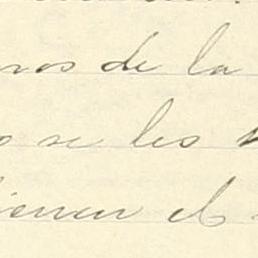 nos de la
o se les
tienen el